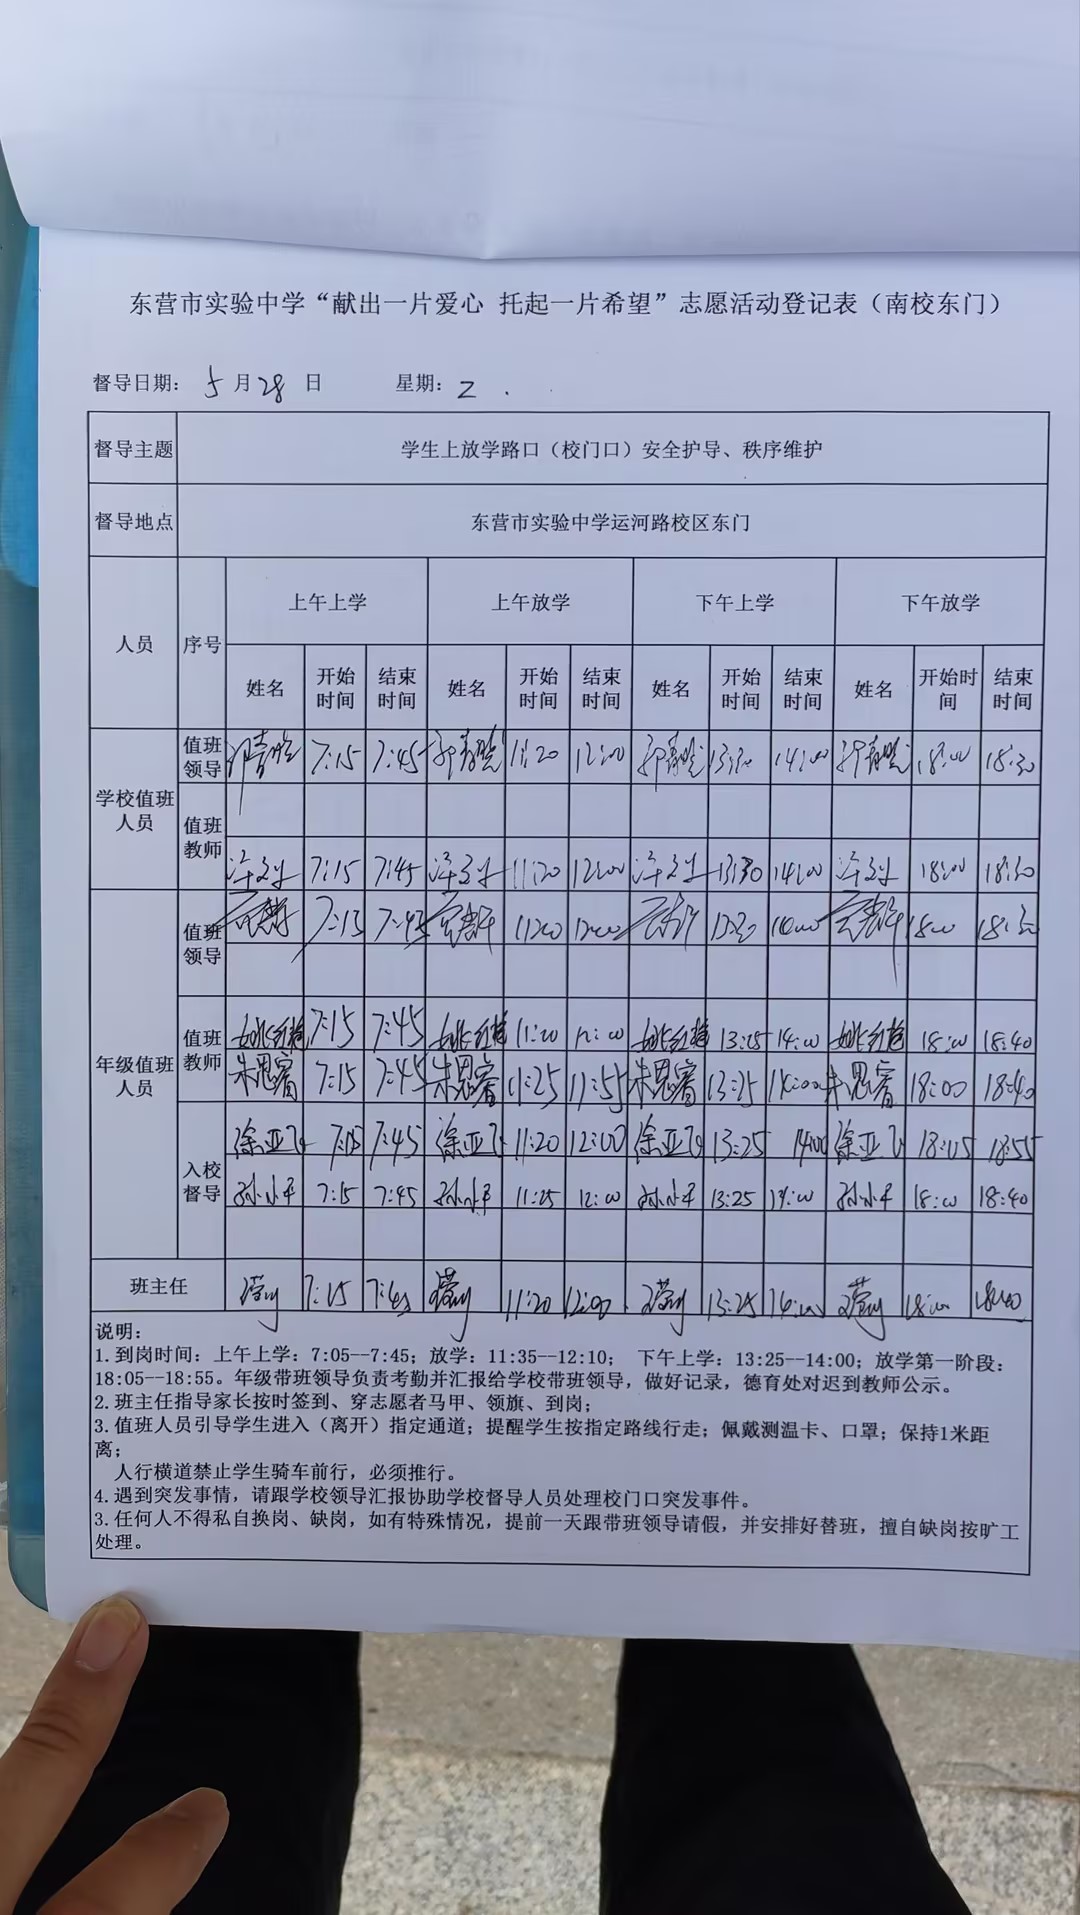 东营市实验中学“献出一片爱心 托起一片希望”志愿活动登记表（南校东门）
督导日期： 5 月 28 日 星期：2 .
督导主题 学生上放学路口（校门口）安全护导、秩序维护
督导地点 东营市实验中学运河路校区东门
人员 序号 上午上学 上午放学 下午上学 下午放学
姓名 开始时间 结束时间 姓名 开始时间 结束时间 姓名 开始时间 结束时间 姓名 开始时间 结束时间
学校值班人员 值班领导 7:15 7:45 11:20 12:00 13:30 14:00 18:00 18:30
值班教师
7:15 7:45 11:20 12:00 13:30 14:00 18:00 18:30
年级值班人员 值班领导 7:15 7:45 11:20 12:00 13:30 14:00 18:00 18:30
值班教师 姚红艳 7:15 7:45 姚红艳 11:20 12:00 姚红艳 13:25 14:00 姚红艳 18:00 18:40
朱恩睿 7:15 7:45 朱恩睿 11:25 11:55 朱恩睿 13:25 14:00 朱恩睿 18:00 18:40
入校督导 徐亚飞 7:15 7:45 徐亚飞 11:20 12:00 徐亚飞 13:25 14:00 徐亚飞 18:05 18:55
孙小平 7:15 7:45 孙小平 11:25 12:00 孙小平 13:25 14:00 孙小平 18:00 18:40
班主任 7:15 7:45 11:20 12:00 13:25 14:00 18:00 18:40
说明：
1. 到岗时间：上午上学：7:05--7:45；放学：11:35--12:10； 下午上学：13:25--14:00；放学第一阶段：
18:05--18:55。年级带班领导负责考勤并汇报给学校带班领导，做好记录，德育处对迟到教师公示。
2. 班主任指导家长按时签到、穿志愿者马甲、领旗、到岗；
3. 值班人员引导学生进入（离开）指定通道；提醒学生按指定路线行走；佩戴测温卡、口罩；保持1米距
离；
人行横道禁止学生骑车前行，必须推行。
4. 遇到突发事情，请跟学校领导汇报协助学校督导人员处理校门口突发事件。
3. 任何人不得私自换岗、缺岗，如有特殊情况，提前一天跟带班领导请假，并安排好替班，擅自缺岗按旷工
处理。